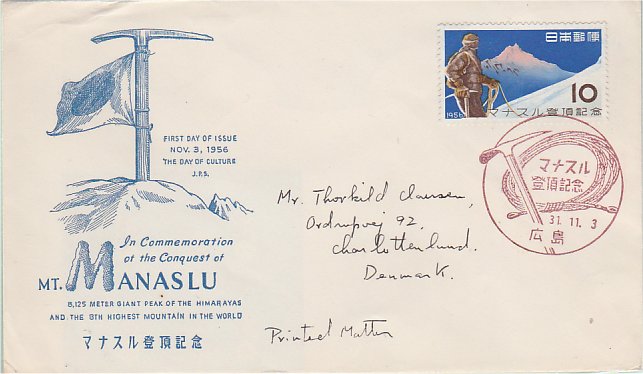 FIRST DAY OF ISSUE
NOV. 3, 1956
THE DAY OF CULTURE
J.P.S.
In Commemoration
ot the Conquest of
MT. MANASLU
8,125 METER GIANT PEAK OF THE HIMARAYAS
AND THE 8TH HIGHEST MOUNTAIN IN THE WORLD
マナスル登頂記念
日本郵便
10
1956 マナスル登頂記念
マナスル
登頂記念
31.11.3
広島
Mr. Thorkild Clausen,
Ordrupvej 92.
Charlottenlund.
Denmark.
Printed Matter